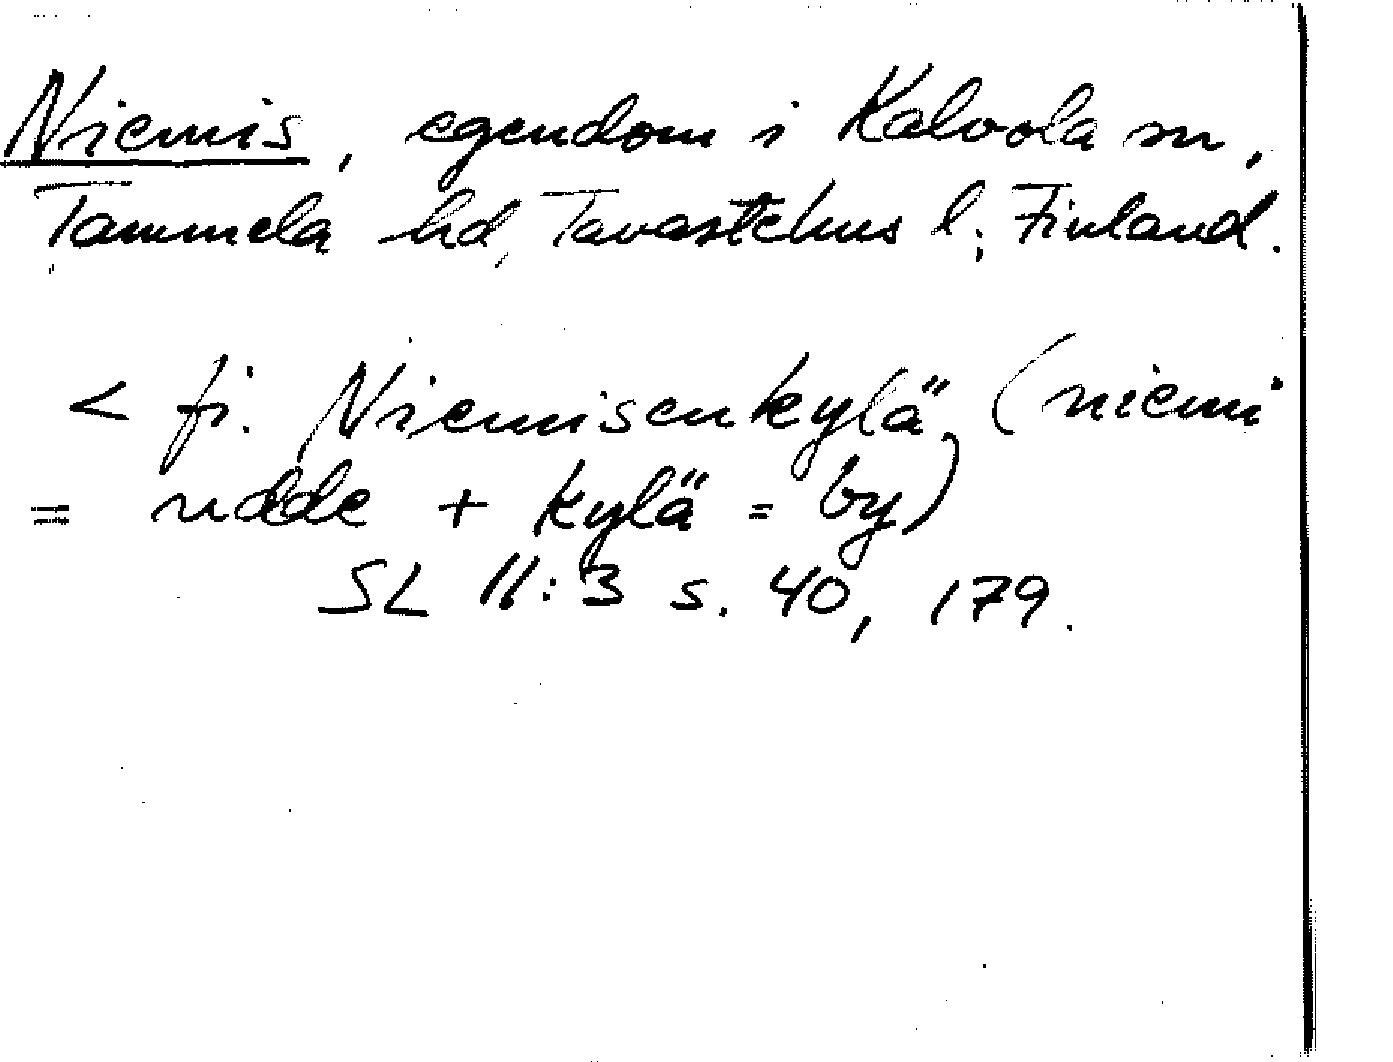 Niemis, egendom i Kalvola sn,
Tammela hd, Tavastehus l; Finland.
< fi. Niemisenkylä (niemi
= udde + kylä = by)
SL 11:3 s. 40, 179.